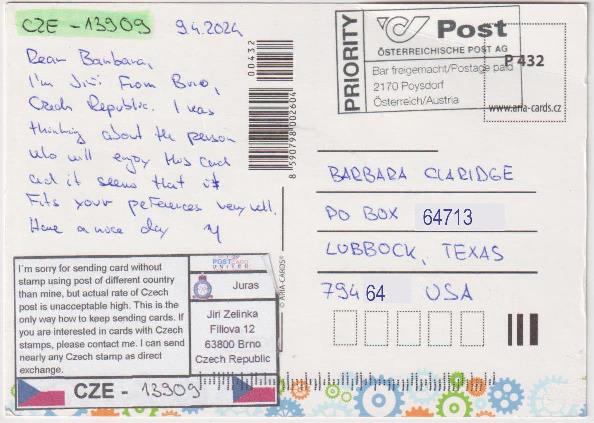 CZE - 13909
9.4.2024
Dear Barbara,
I'm Jiří from Brno,
Czech Republic. I was
thinking about the person
who will enjoy this card
and it seems that it
fits your peferences very well.
Have a nice day
00432
8 590798 002604
PRIORITY
Post
ÖSTERREICHISCHE POST AG
Bar freigemacht/Postage paid
2170 Poysdorf
Österreich/Austria
P 432
www.aria-cards.cz
BARBARA CLARIDGE
PO BOX 64713
LUBBOCK, TEXAS
79464 USA
© ARIA-CARDS®
I'm sorry for sending card without
stamp using post of different country
than mine, but actual rate of Czech
post is unacceptable high. This is the
only way how to keep sending cards. If
you are interested in cards with Czech
stamps, please contact me. I can send
nearly any Czech stamp as direct
exchange.
POSTCARD
UNITED
Juras
Jiri Zelinka
Fillova 12
63800 Brno
Czech Republic
CZE - 13909